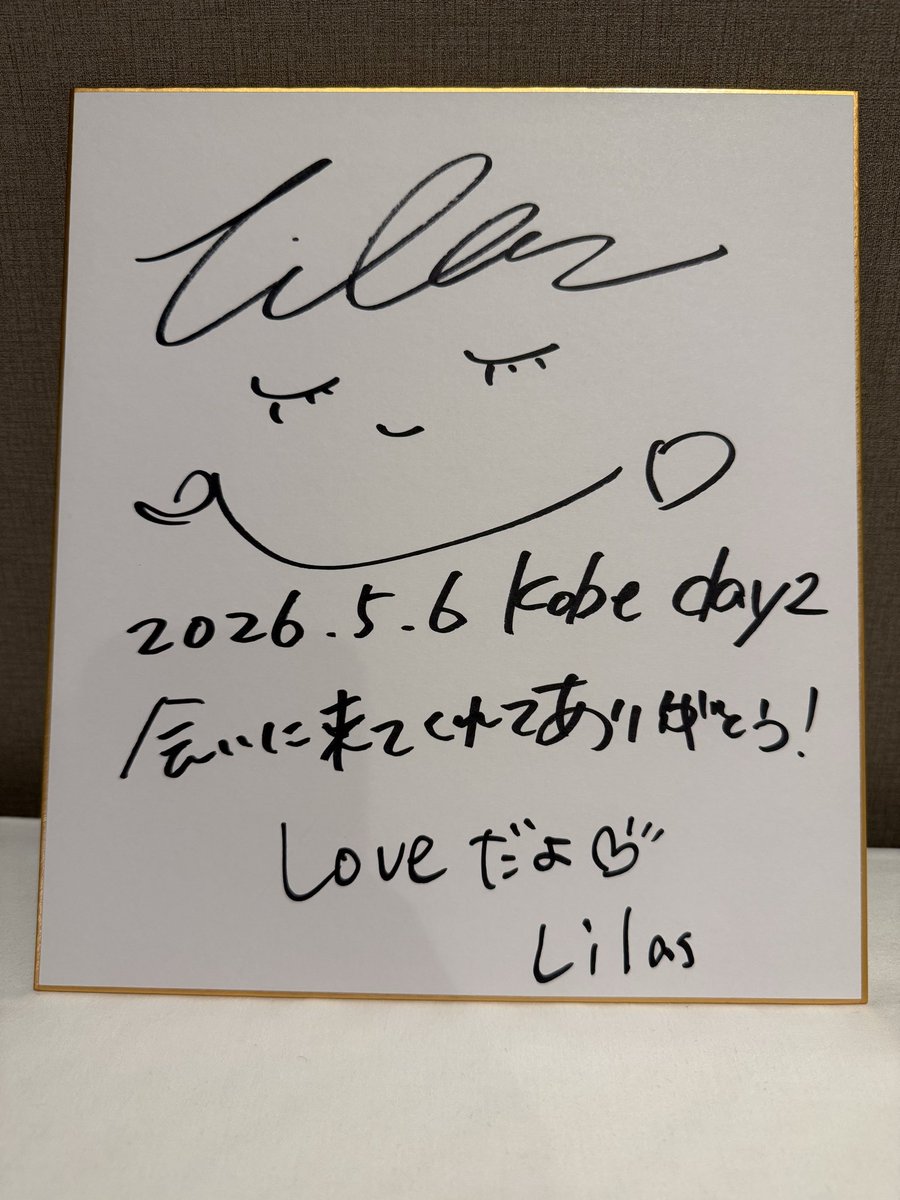 Lilas
2026.5.6 Kobe day2
会いに来てくれてありがとう!
Loveだよ
Lilas